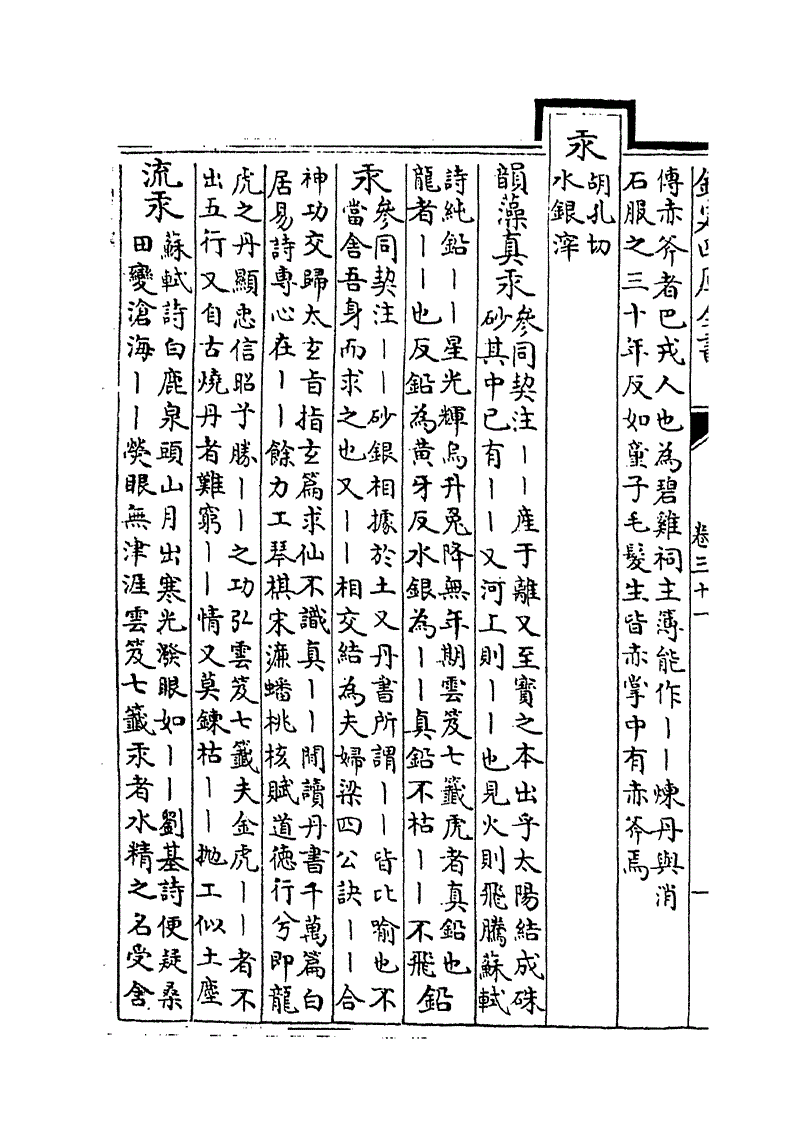 欽定四庫全書
卷三十一
傳赤斧者巴戎人也為碧雞祠主簿能作丨丨煉丹與消
石服之三十年反如童子毛髮生皆赤掌中有赤斧焉
汞
胡孔切
水銀滓
韻藻真汞
參同契注丨丨産于離又至寳之本出乎太陽結成硃
砂其中已有丨丨又河上則丨丨也見火則飛騰蘇軾
詩純鉛丨丨星光輝烏升兔降無年期雲笈七籤虎者真鉛也
龍者丨丨也反鉛為黄牙反水銀為丨丨真鉛不枯丨丨不飛
鉛
汞
參同契注丨丨砂銀相據於土又丹書所謂丨丨皆比喻也不
當舍吾身而求之也又丨丨相交結為夫婦梁四公訣丨丨合
神功交歸太玄㫖指玄篇求仙不識真丨丨閒讀丹書千萬篇白
居易詩專心在丨丨餘力工琴棋宋濂蟠桃核賦道徳行兮即龍
虎之丹顯忠信昭予勝丨丨之功弘雲笈七籤夫金虎丨丨者不
出五行又自古燒丹者難窮丨丨情又莫鍊枯丨丨抛工似土塵
流汞
蘇軾詩白鹿泉頭山月出寒光潑眼如丨丨劉基詩便疑桑
田變滄海丨丨熒眼無津涯雲笈七籤汞者水精之名受舍